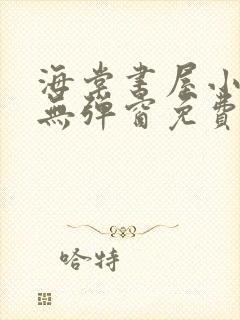 海棠書屋小
無彈窗免費
哈特